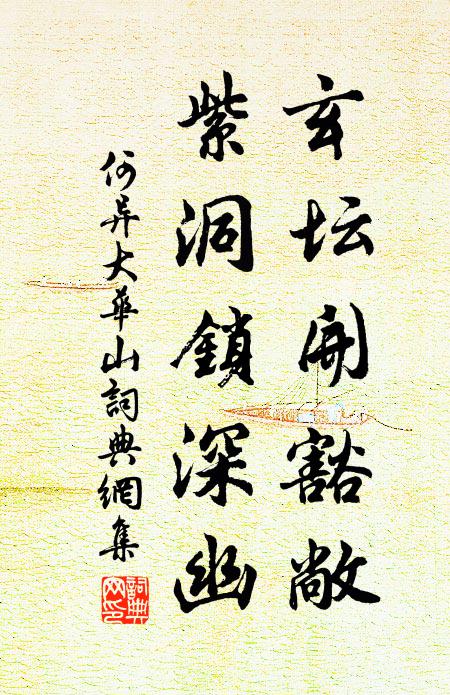 玄坛開豁敞
紫洞鎖深幽
何异大華山詞典網集
詞典
网印